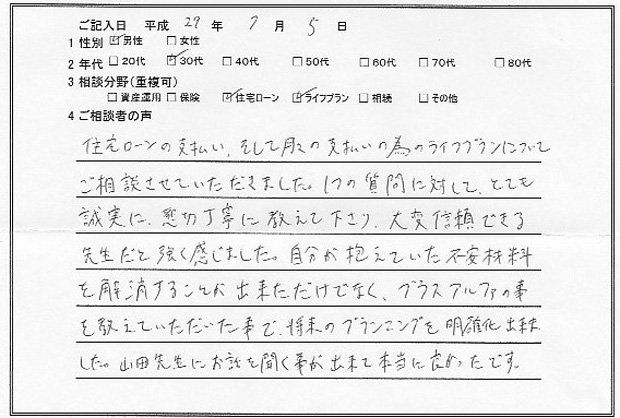 ご記入日 平成 29 年 7 月 5 日
1 性別 ☑男性 □女性
2 年代 □20代 ☑30代 □40代 □50代 □60代 □70代 □80代
3 相談分野(重複可)
□資産運用 □保険 ☑住宅ローン ☑ライフプラン □相続 □その他
4 ご相談者の声
住宅ローンの支払い、そして月々の支払いの為のライフプランについて
ご相談させていただきました。1つの質問に対して、とても
誠実に、懇切丁寧に教えて下さり、大変信頼できる
先生だと強く感じました。自分が抱えていた不安材料
を解消することが出来ただけでなく、プラスアルファの事
を教えていただいた事で、将来のプランニングを明確化出来ま
した。山田先生にお話を聞く事が出来て本当に良かったです。